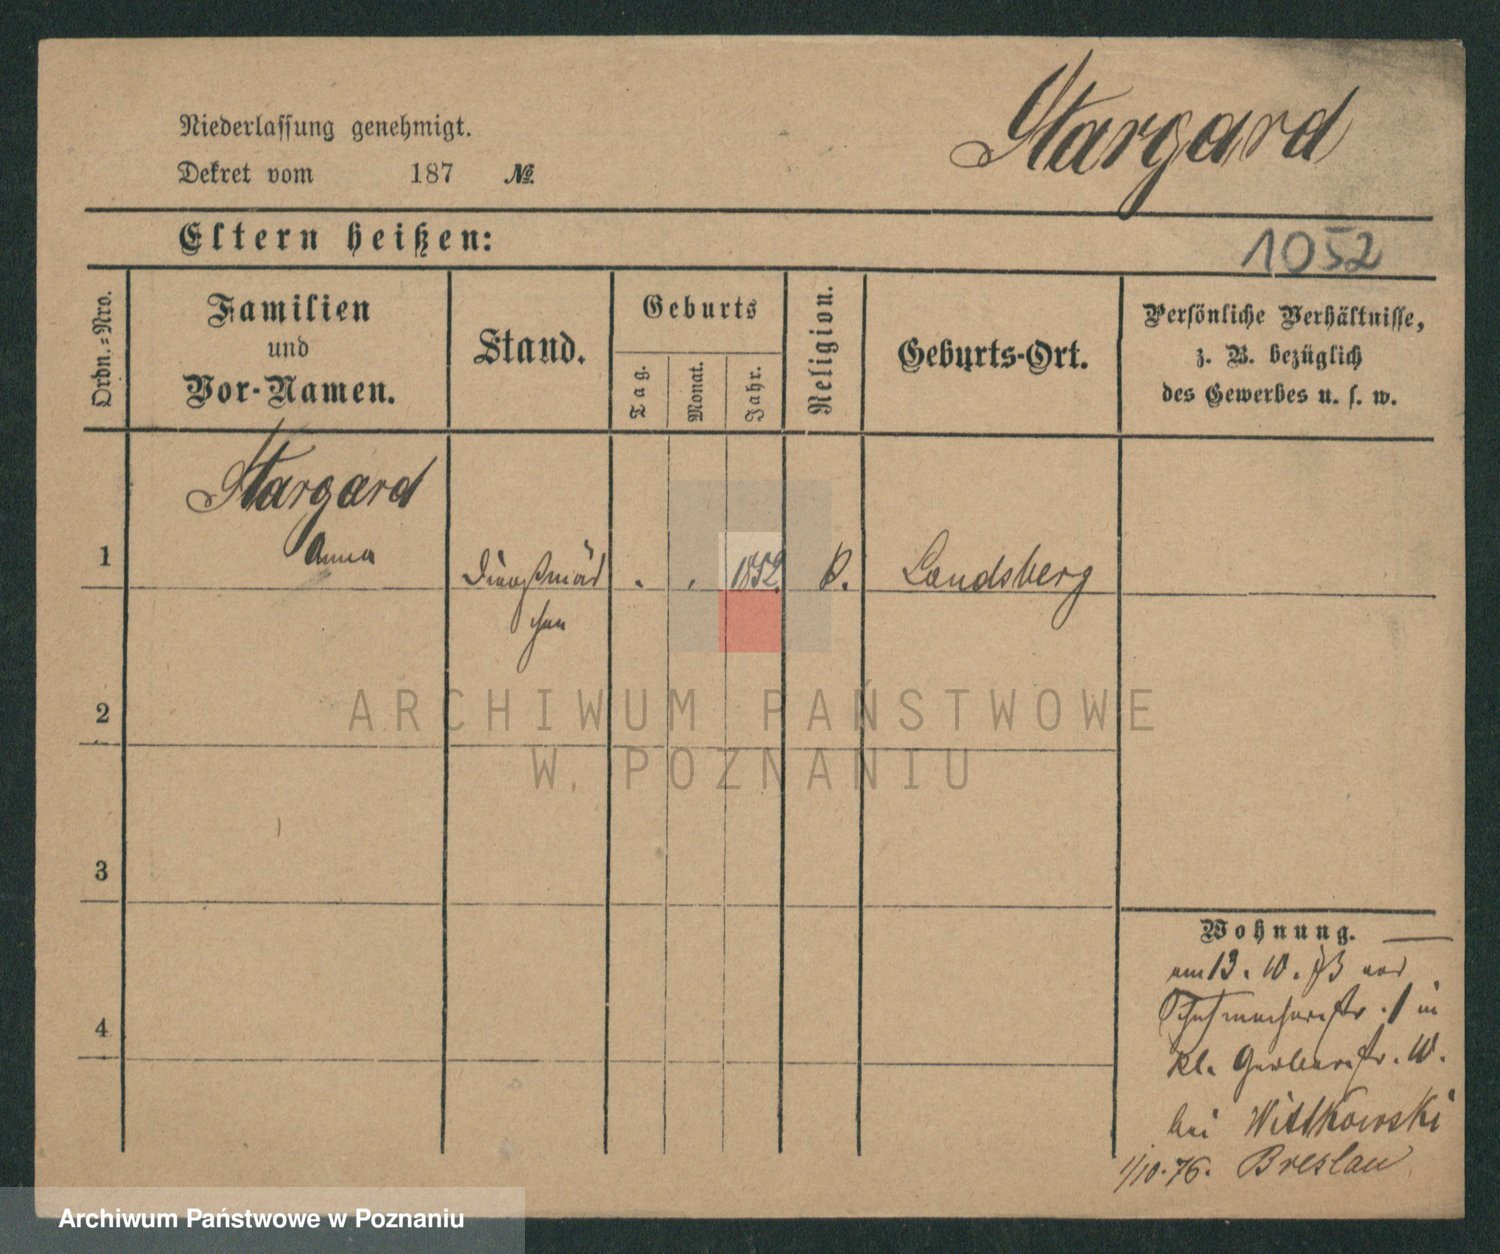 Stargard
Niederlassung genehmigt.
Dekret vom 187 №
Eltern heißen:
1052
Ordn.=Nro.
Familien
und
Vor-Namen.
Stand.
Geburts
Tag.
Monat.
Jahr.
Religion.
Geburts-Ort.
Persönliche Verhältnisse,
z. B. bezüglich
des Gewerbes u. s. w.
Stargard
1 Anna Dienstmäd . . 1852 Landsberg
chen
2
ARCHIWUM PAŃSTWOWE
W POZNANIU
3
Wohnung.
am 13. 10. 73 von
Schuhmacherstr. 1 in
kl. Gerberstr. 10.
4
bei Wittkowski
1/10.76. Breslau
Archiwum Państwowe w Poznaniu